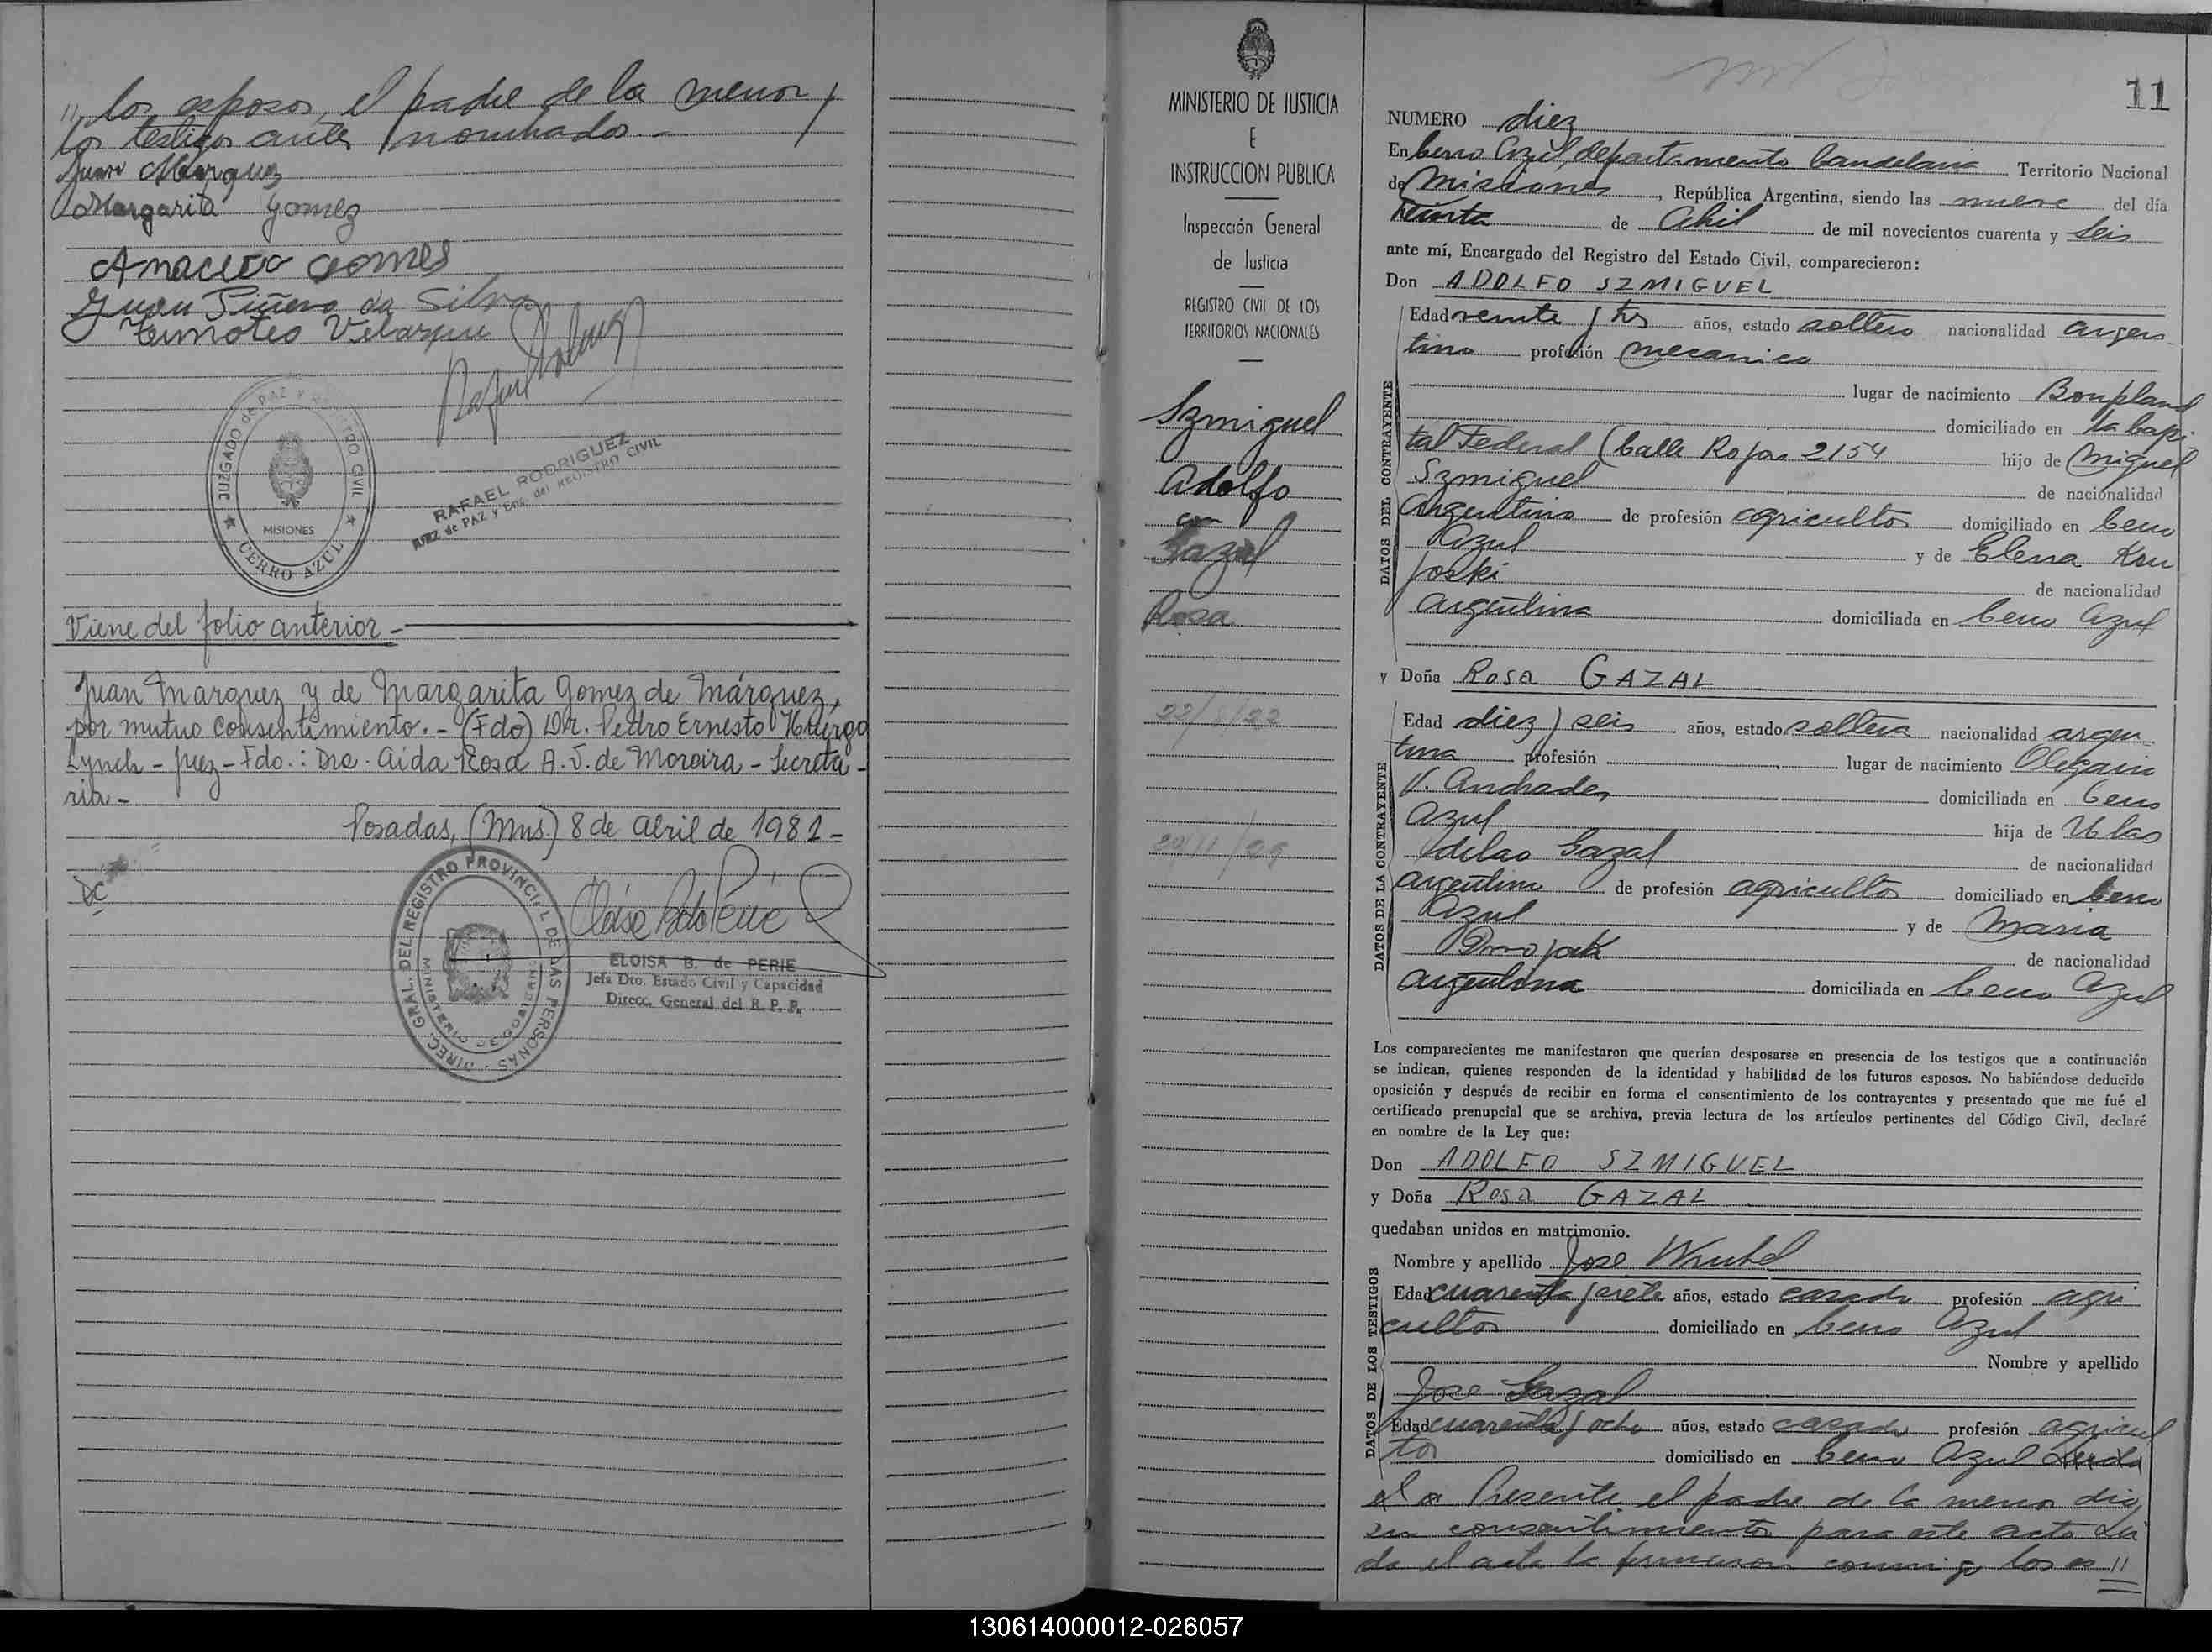 " los esposos, el padre de la menor y
los testigos antes nominados -
Juan Marquez
Margarita Gomez
Anacleto Gomes
Juan Piñero da Silva
Timoteo Velazquez
JUZGADO de PAZ Y REGISTRO CIVIL
MISIONES
CERRO AZUL
RAFAEL RODRIGUEZ
JUEZ de PAZ y Enc. del REGISTRO CIVIL
Viene del folio anterior -
Juan Marquez y de Margarita Gomez de Márquez,
por mutuo consentimiento. - (Fdo) Dr. Pedro Ernesto
Lynch - Juez - Fdo.: Dra. Aida Rosa A. V. de Moreira - Secreta-
ria -
Posadas, (Mns.) 8 de Abril de 1981 -
DIREC. GRAL. DEL REGISTRO PROVINCIAL DE LAS PERSONAS
MINISTERIO DE GOBIERNO
ELOISA B. de PERIE
Jefa Dto. Estado Civil y Capacidad
Direcc. General del R. P. P.
MINISTERIO DE JUSTICIA
E
INSTRUCCION PUBLICA
Inspección General
de Justicia
REGISTRO CIVIL DE LOS
TERRITORIOS NACIONALES
Szmiguel
Adolfo
con
Gazal
Rosa
11
NUMERO diez
En Cerro Azul, departamento Candelaria Territorio Nacional
de Misiones, República Argentina, siendo las nueve del día
treinta de Abril de mil novecientos cuarenta y seis
ante mí, Encargado del Registro del Estado Civil, comparecieron:
Don ADOLFO SZMIGUEL
DATOS DEL CONTRAYENTE
Edad veinte y tres años, estado soltero nacionalidad argen
tino profesión mecanico
lugar de nacimiento Bonpland
domiciliado en la Capi
tal Federal (Calle Rojas 2154 hijo de Miguel
Szmiguel de nacionalidad
Argentino de profesión agricultor domiciliado en Cerro
Azul y de Elena
de nacionalidad
argentina domiciliada en Cerro Azul
y Doña ROSA GAZAL
DATOS DE LA CONTRAYENTE
Edad diez y seis años, estado soltera nacionalidad argen
tina profesión lugar de nacimiento Olegario
V. Andrade, domiciliada en Cerro
Azul hija de Wla
dislao Gazal de nacionalidad
argentino de profesión agricultor domiciliado en Cerro
Azul y de Maria
de nacionalidad
argentina domiciliada en Cerro Azul
Los comparecientes me manifestaron que querían desposarse en presencia de los testigos que a continuación
se indican, quienes responden de la identidad y habilidad de los futuros esposos. No habiéndose deducido
oposición y después de recibir en forma el consentimiento de los contrayentes y presentado que me fué el
certificado prenupcial que se archiva, previa lectura de los artículos pertinentes del Código Civil, declaré
en nombre de la Ley que:
Don ADOLFO SZMIGUEL
y Doña ROSA GAZAL
quedaban unidos en matrimonio.
DATOS DE LOS TESTIGOS
Nombre y apellido Jose Wrubel
Edad cuarenta y siete años, estado casado profesión agri
cultor domiciliado en Cerro Azul
Nombre y apellido
Jose Gazal
Edad cuarenta y ocho años, estado casado profesión agricul
tor domiciliado en Cerro Azul
Presente el padre de la menor dio
su consentimiento para este acto Lei
da el acta la firmaron conmigo los es "
130614000012-026057